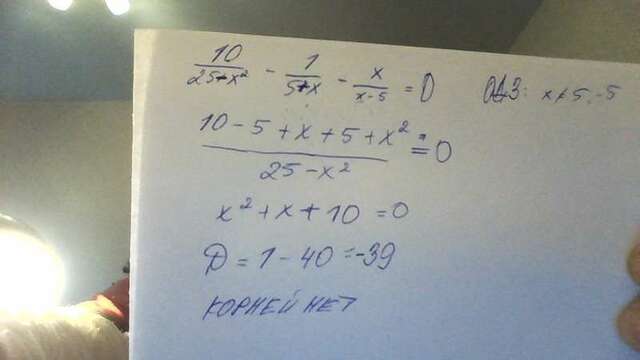 10/(25-x²) - 1/(5+x) - x/(x-5) = 0 ОДЗ: x≠5,-5
(10-5+x+5+x²)/(25-x²) = 0
x²+x+10=0
D=1-40=-39
КОРНЕЙ НЕТ